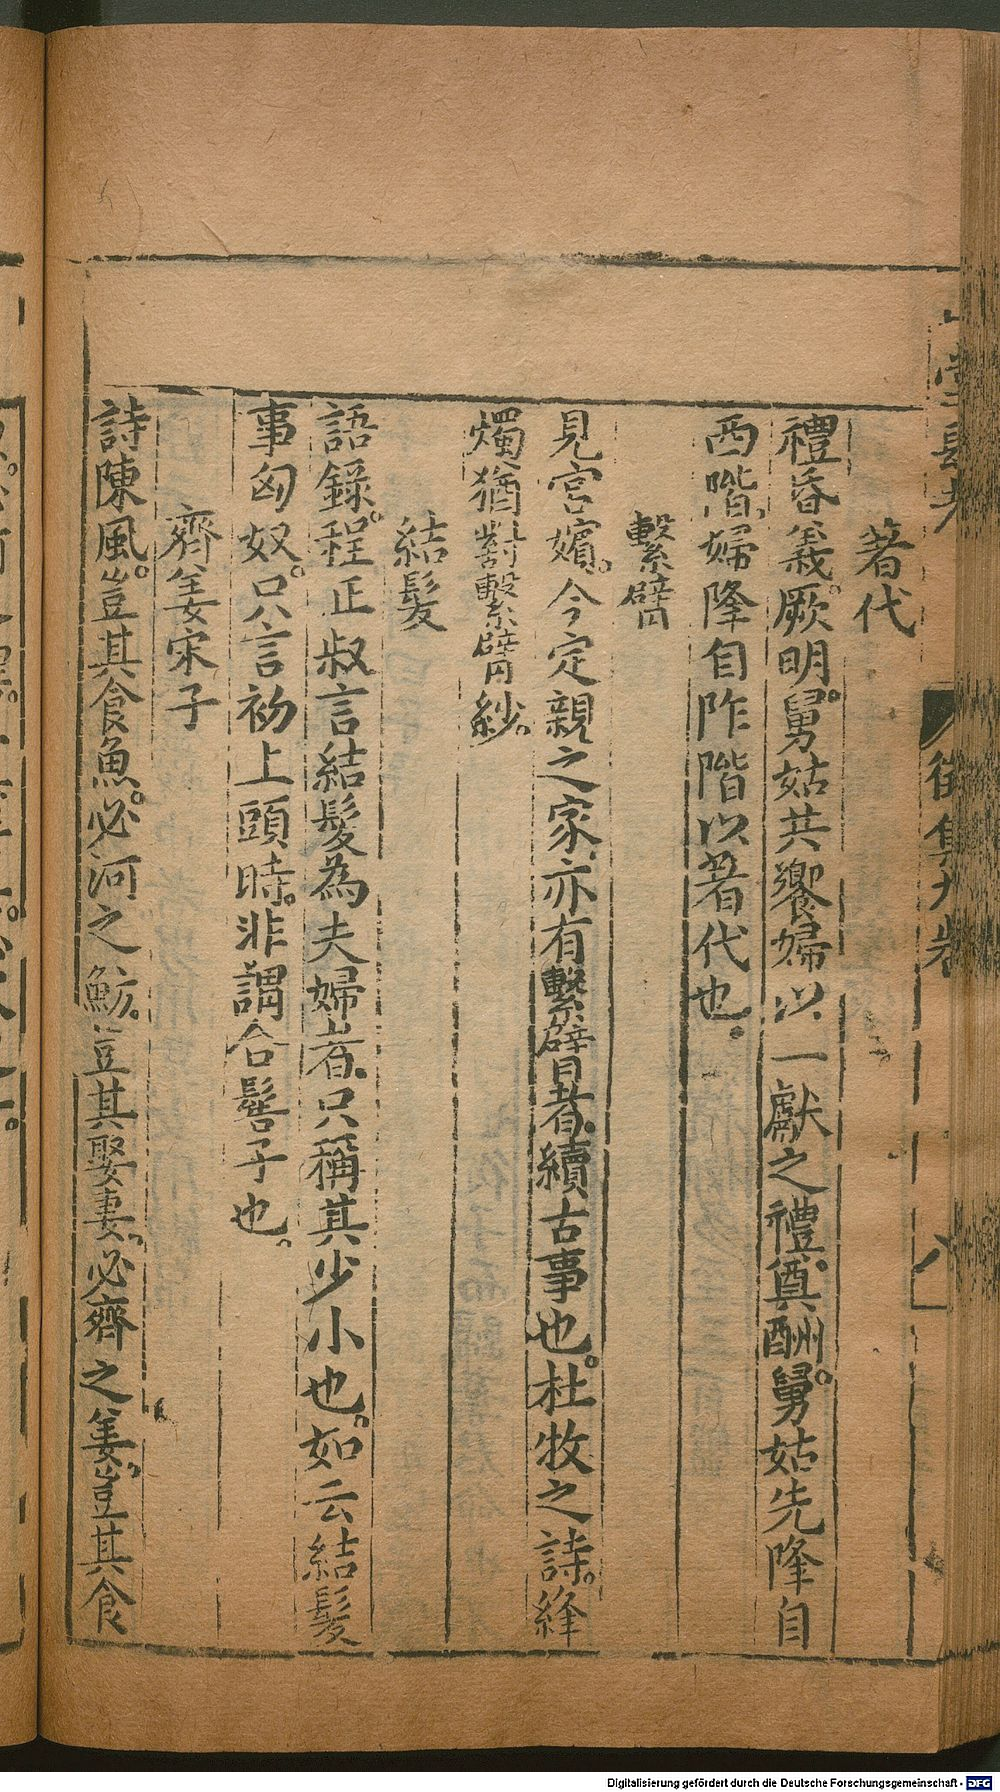 著代
禮昏義。厥明。舅姑共饗婦以一獻之禮奠酬。舅姑先降自
西階。婦降自阼階以著代也。
繫臂
見宮嬪。今定親之家亦有繫臂者。續古事也。杜牧之詩。絳
燭猶封繫臂紗。
結髮
語錄。程正叔言結髮為夫婦者。只稱其少小也。如云結髮
事匈奴。只言初上頭時。非謂合髻子也。
齊姜宋子
詩陳風。豈其食魚。必河之魴。豈其娶妻。必齊之姜。豈其食
山堂肆考
徵集九卷
八
Digitalisierung gefördert durch die Deutsche Forschungsgemeinschaft - DFG